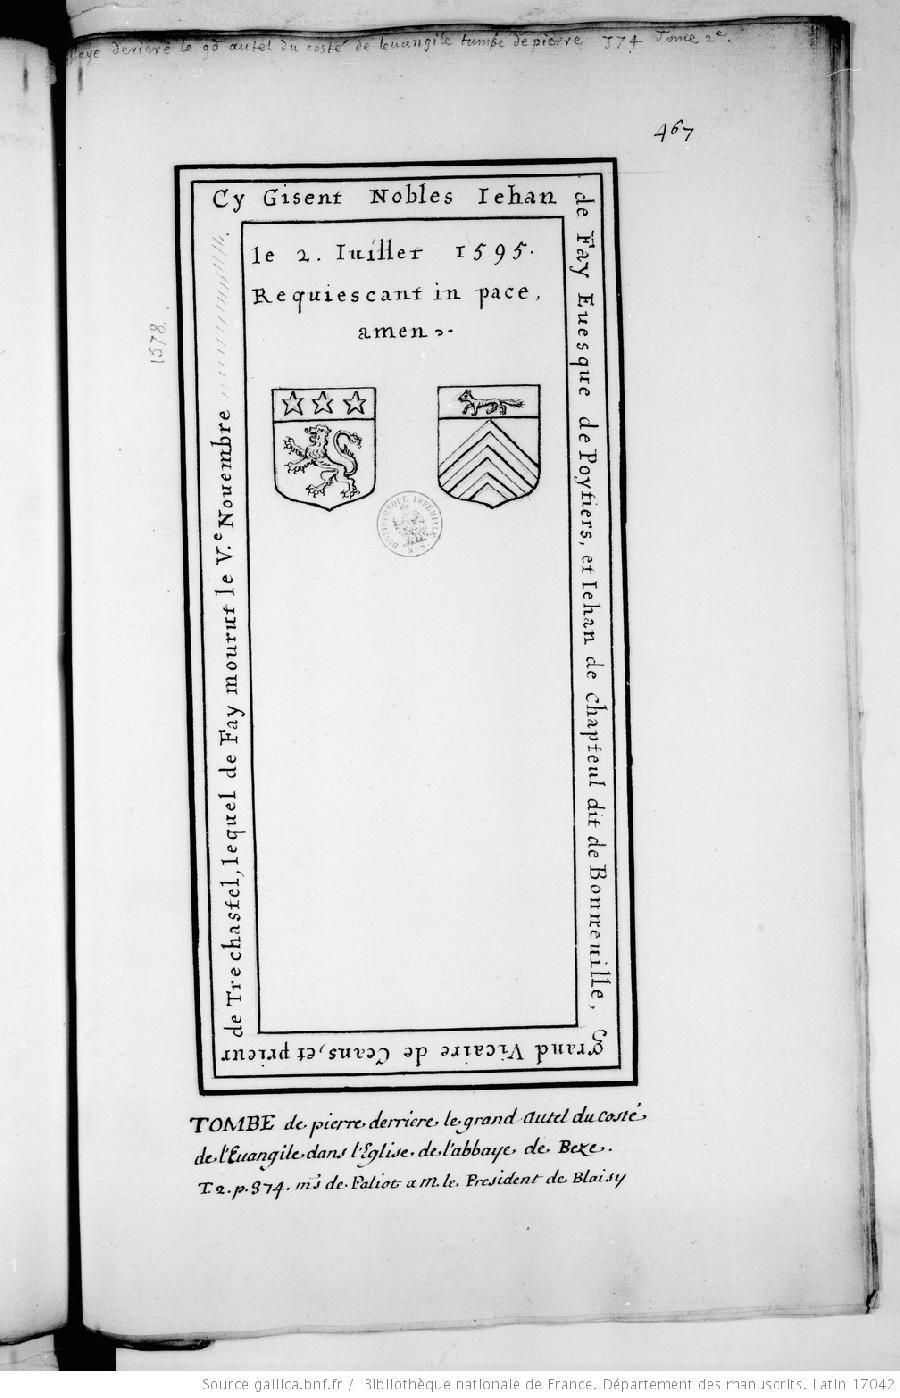 derriere le gd autel du costé de leuangile tumbe de pierre 374 Tome 2e.
467
Cy Gisent Nobles Iehan
de Fay Euesque de Poytiers, et Iehan de Chapteul dit de Bonneuille,
grand Vicaire de Ceans, et prieur
de Trechastel, lequel de Fay mourut le V.e Nouembre
1578.
le 2. Iuillet 1595.
Requiescant in pace,
amen
TOMBE de pierre derriere le grand autel du costé
de l'Euangile dans l'Eglise de l'abbaye de Beze.
T. 2. p. 374. ms de Paliot a m. le President de Blaisy
Source gallica.bnf.fr / Bibliothèque nationale de France. Département des manuscrits. Latin 17042